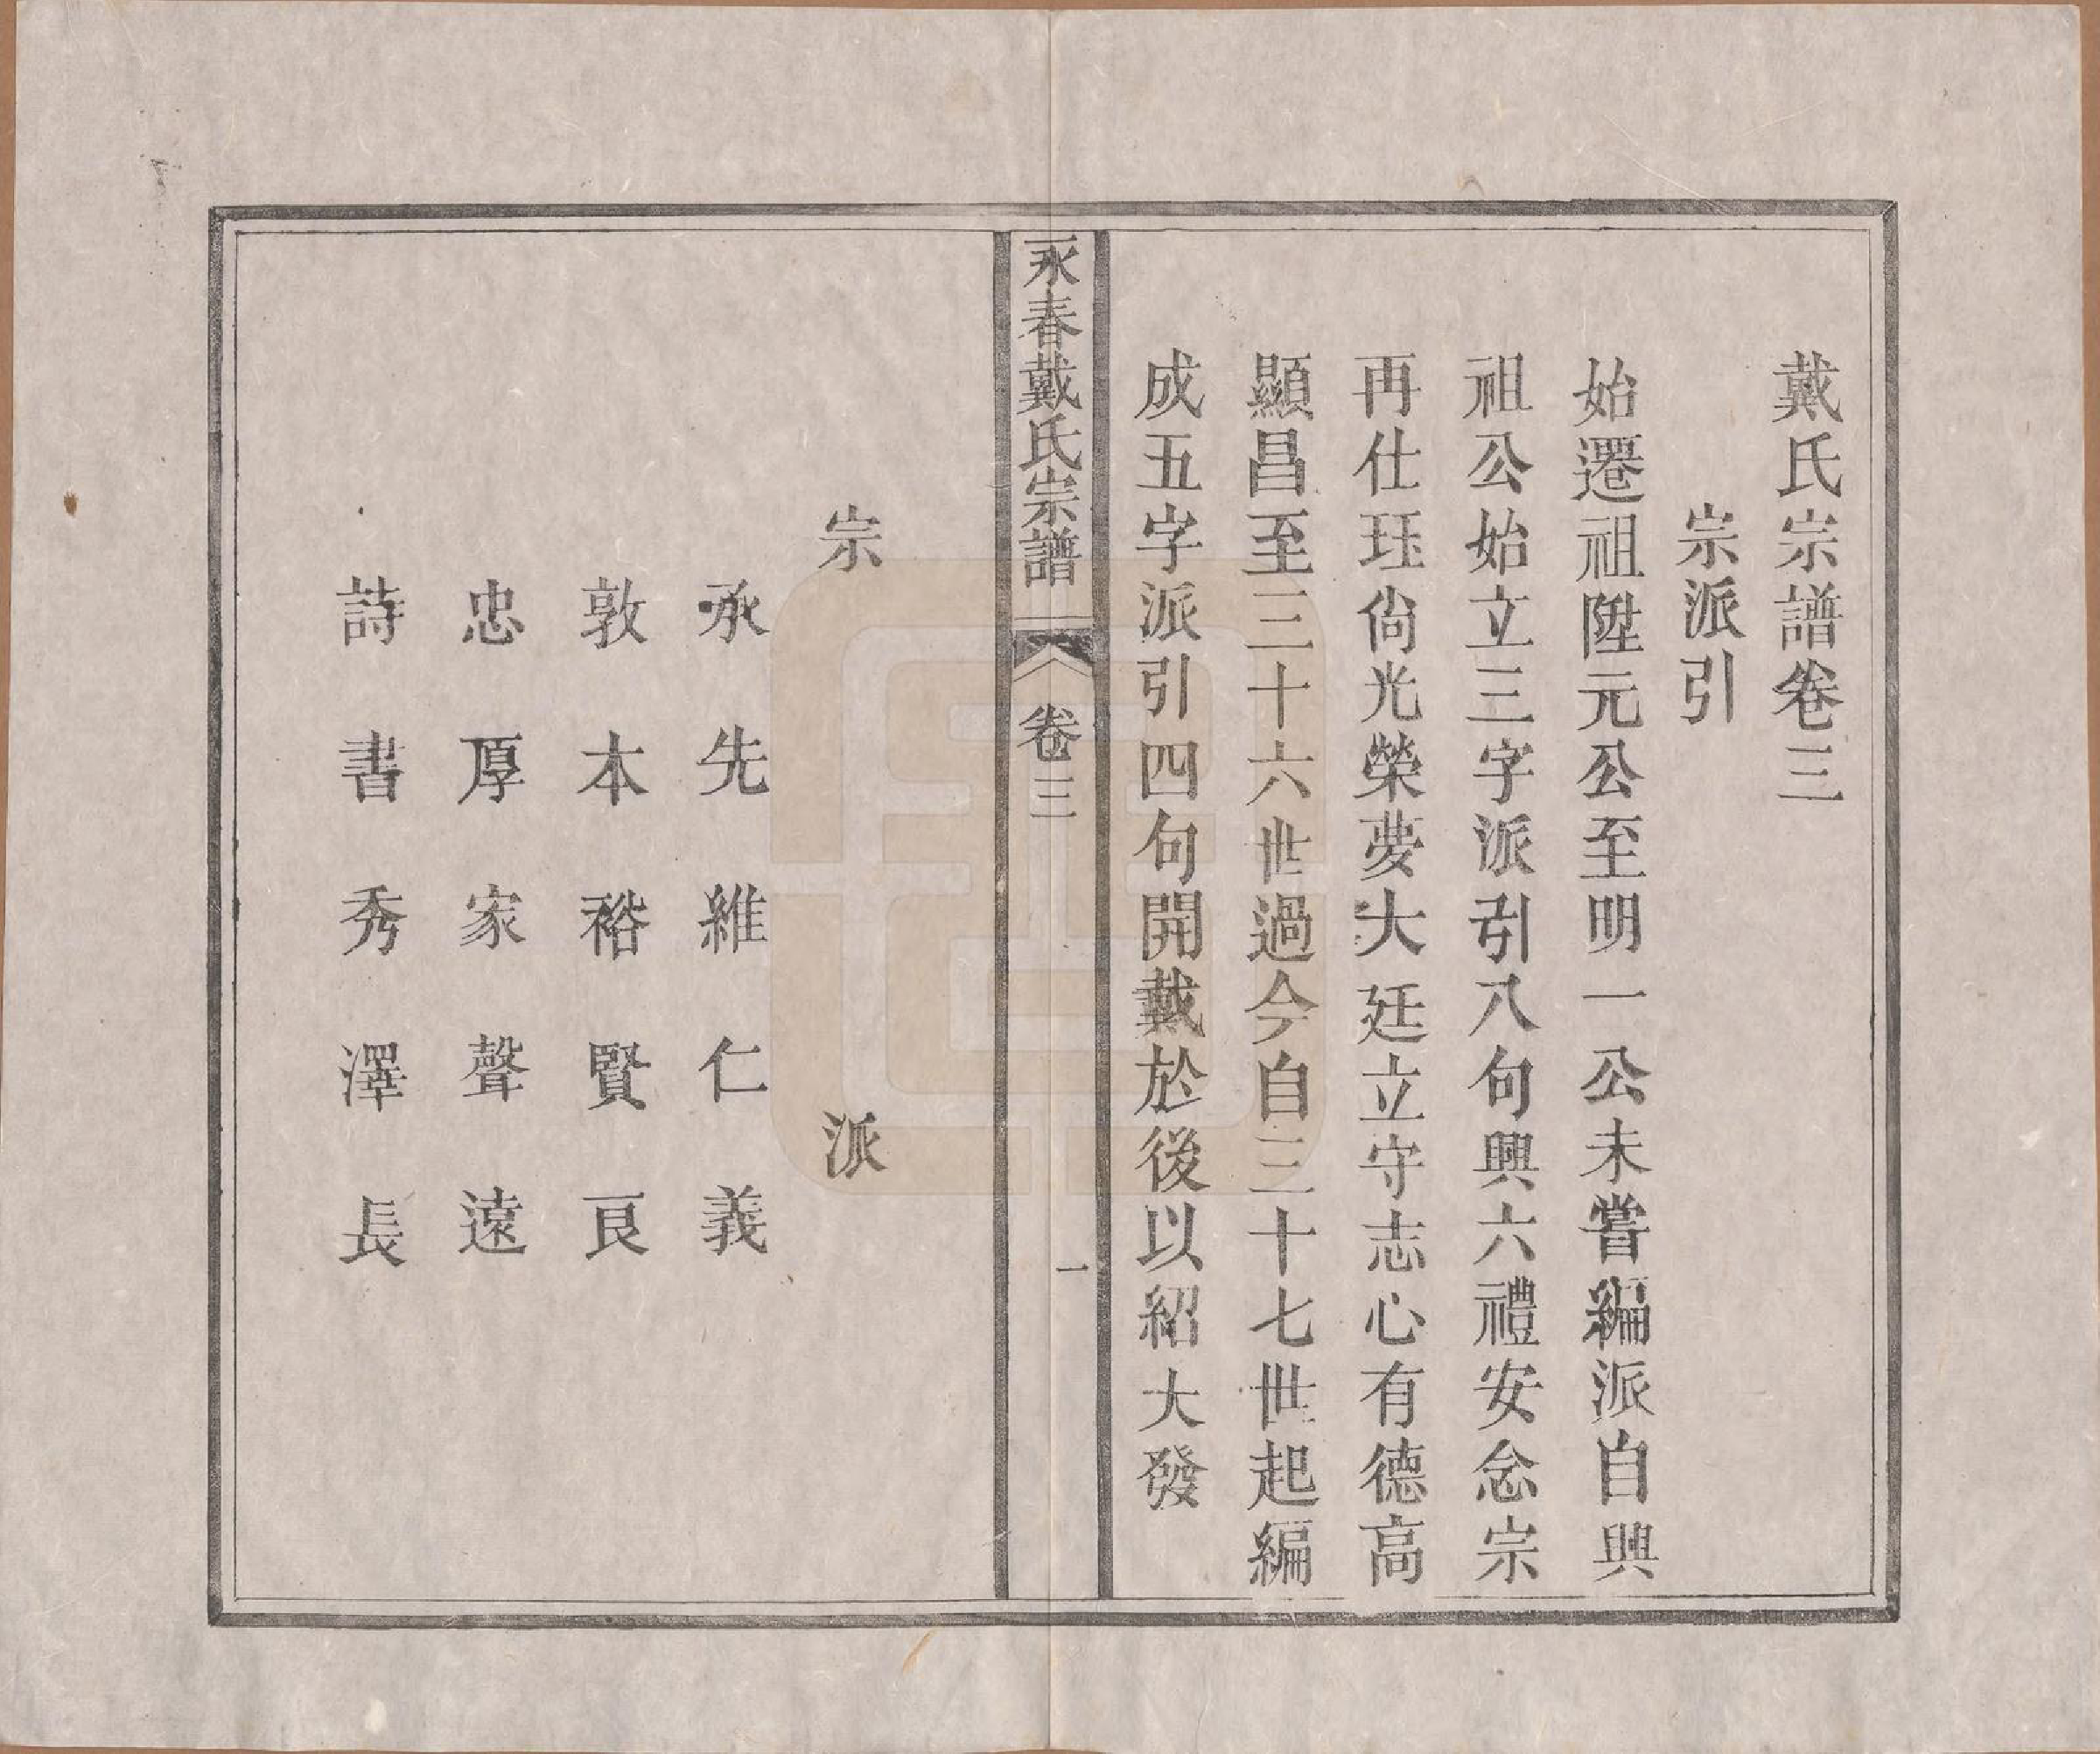 戴氏宗譜卷三
宗派引
始遷祖陞元公至明一公未嘗編派自興
祖公始立三字派引八句興六禮安念宗
再仕珏尙光榮夢大廷立守志心有德高
顯昌至三十六世過今自三十七世起編
成五字派引四句開戴於後以紹大發
永春戴氏宗譜
卷三
一
宗派
承先維仁義
敦本裕賢良
忠厚家聲遠
詩書秀澤長